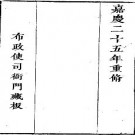 嘉慶二十五年重脩
布政使司衙門藏板